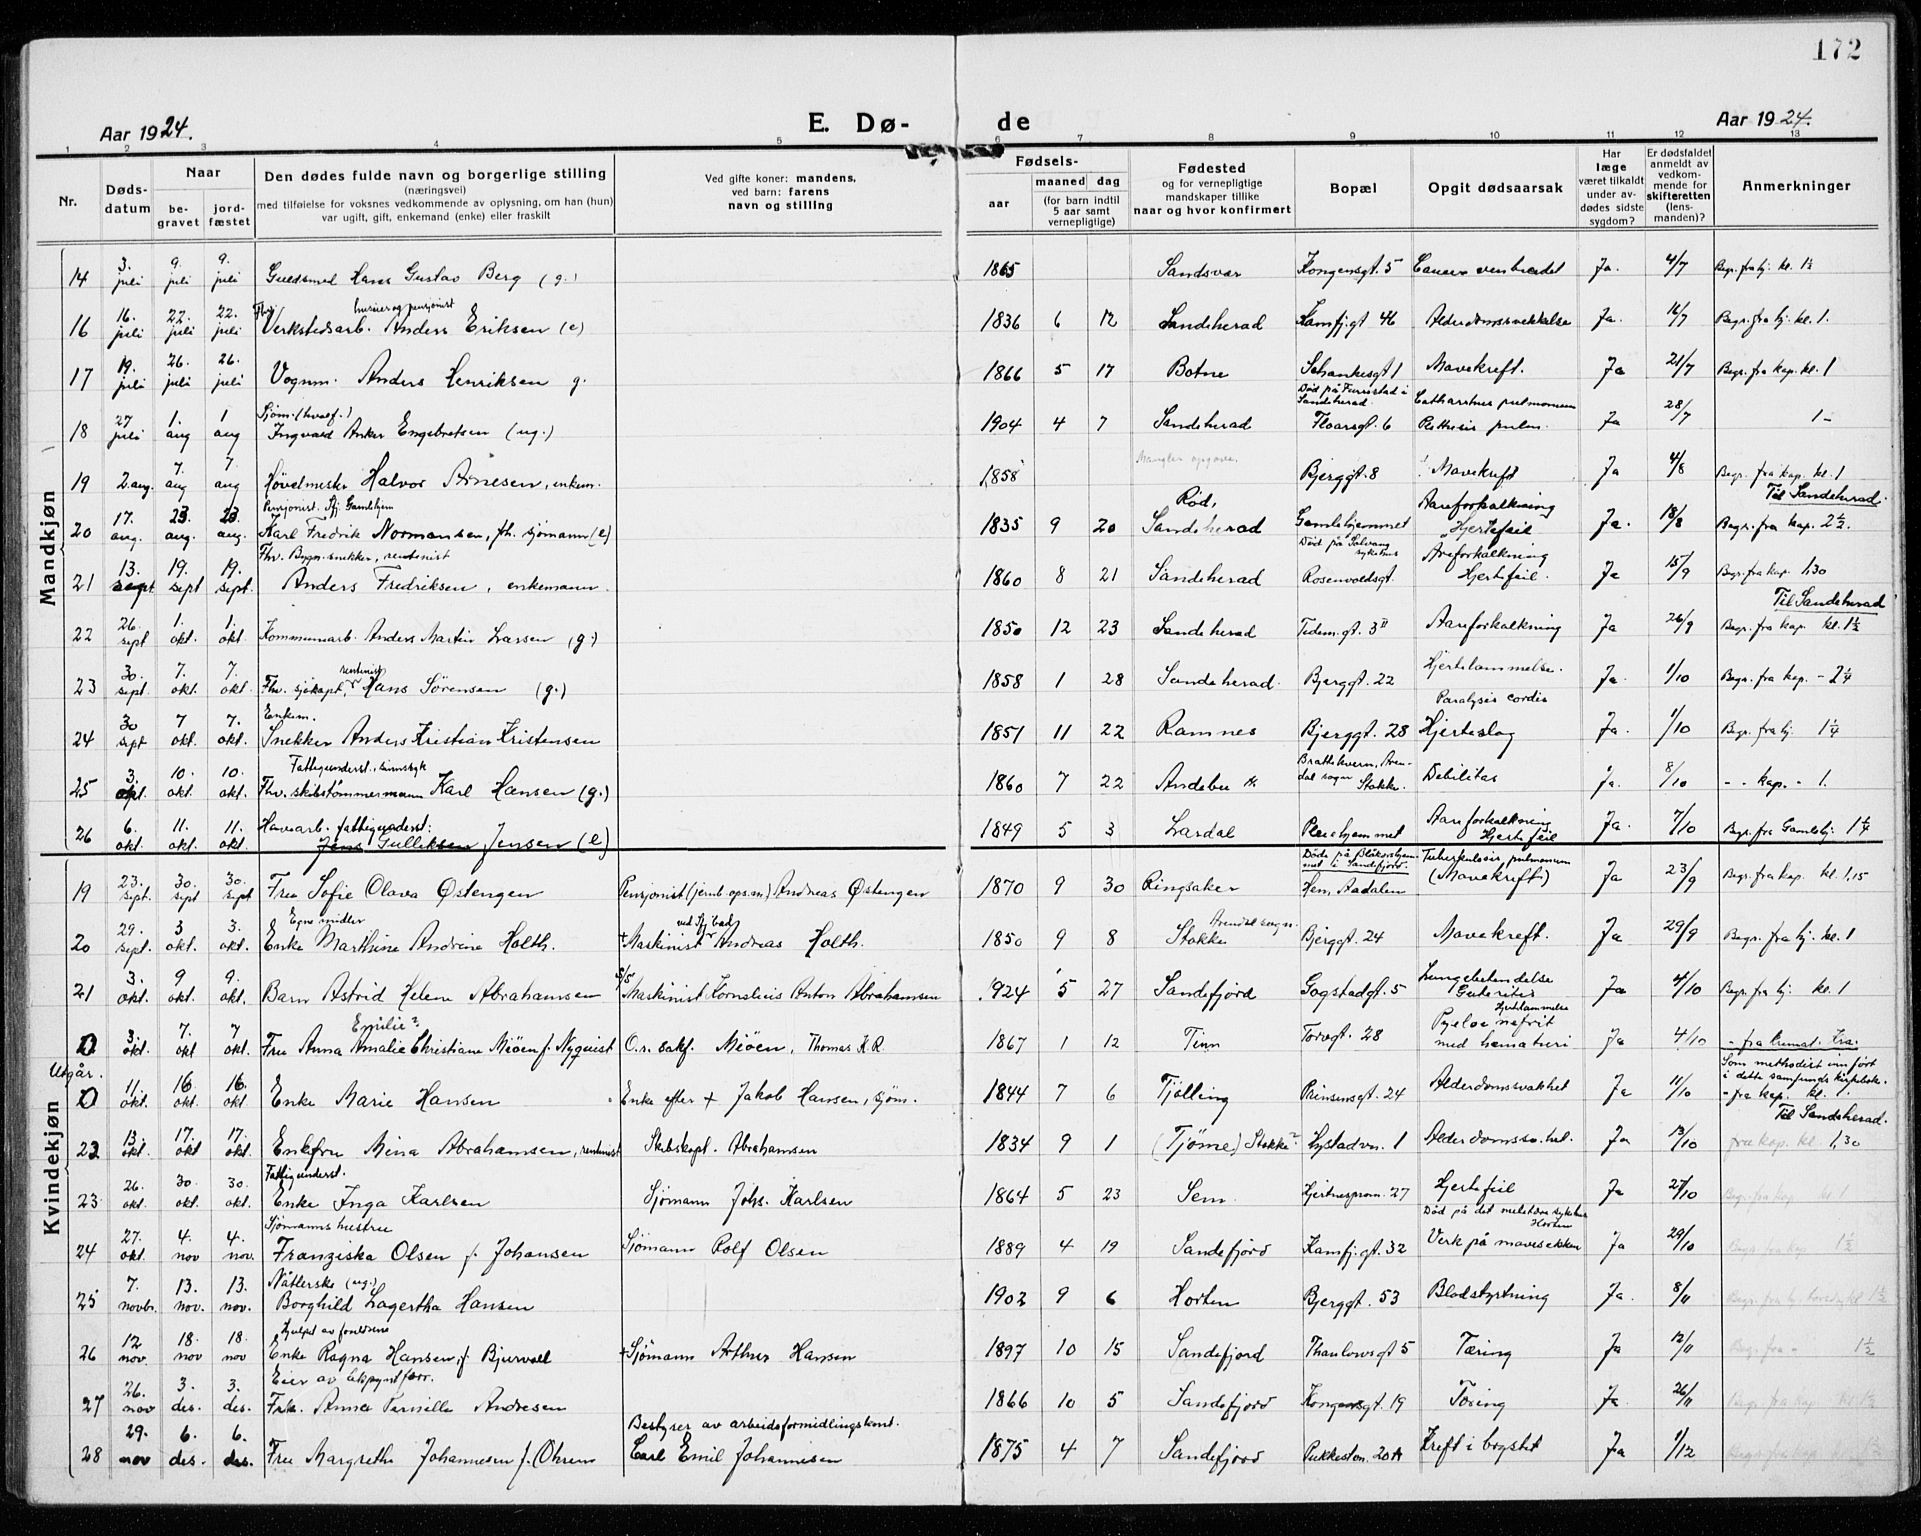 172
Aar 1924. E. Dø- de Aar 1924.
1 2 3 4 5 6 7 8 9 10 11 12 13
Nr. Døds-datum Naar be-gravet jord-fæstet Den dødes fulde navn og borgerlige stilling (næringsvei) med tilføielse for voksnes vedkommende av oplysning, om han (hun) var ugift, gift, enkemand (enke) eller fraskilt Ved gifte koner: mandens, ved barn: farens navn og stilling Fødsels- aar maaned dag (for barn indtil 5 aar samt vernepligtige) Fødested og for vernepligtige mandskaper tillike naar og hvor konfirmert Bopæl Opgit dødsaarsak Har læge været tilkaldt under av-dødes sidste sygdom? Er dødsfaldet anmeldt av vedkom-mende for skifteretten (lens-manden)? Anmerkninger
Mandkjøn
14 3. juli 9. juli 9. juli Guldsmed Hans Gustav Berg (g.) 1865 Sandsvær Kongensgt. 5 Cancer ventriculi Ja. 4/7 Begr. fra hj. kl. 1½
16 16. juli 22. juli 22. juli Fhv. Verkstedsarb. huseier og pensjonist Anders Eriksen (e) 1836 6 12 Sandeherad Kamfj.gt 46 Alderdomssvekkelse Ja. 16/7 Begr. fra hj. kl. 1.
17 19. juli 26. juli 26. juli Vognm. Anders Henriksen g. 1866 5 17 Botne Schankesgt 1 Mavekreft. Ja 21/7 Begr. fra kap. kl. 1
18 27 juli 1. aug 1 aug Sjøm. (hvalf.) Ingvald Anker Engebretsen (ug.) 1904 4 7 Sandeherad Død på Furustad i Sandeherad. Floorsgt. 6 Catharrhus pulmonum Phthisis pulm. Ja 28/7 1-
19 2. aug. 7. aug 7. aug Høvelmester Halvor Arnesen, enkem. 1858 Mangler opgave. Bjerggt. 8 Mavekreft Ja 4/8 Begr. fra kap. kl. 1
20 17. aug. 23. aug. 23. aug. Pensjonist. Sfj. Gamlehjem Karl Fredrik Normansen, fh. sjømann (e) 1835 9 20 Rød, Sandeherad Gamlehjemmet Aareforkalkning Hjertefeil Ja. 18/8 Til Sandeherad. Begr. fra kap. 2½.
21 13. sept. 19. sept 19. sept. Fhv. Bygn. snekker, rentenist Anders Fredriksen, enkemann. 1860 8 21 Sandeherad Død på Solvang sykehus Rosenvoldsgt. Areforkalkning Hjertefeil. Ja 15/9 Begr. fra kap. 1,30
22 26. sept 1. okt. 1. okt. Kommunearb. Anders Martin Larsen (g.) 1850 12 23 Sandeherad Tidem.gt. 3 II Aareforkalkning Ja 26/9 Til Sandeherad Begr. fra kap. kl. 1½
23 30. sept. 7. okt. 7. okt. Fhv. sjøkapt., rentenist Hans Sørensen (g.) 1858 1 28 Sandeherad. Bjerggt. 22 Hjertelammelse. Ja. 1/10 Begr. fra kap. - 2¼
24 30 sept 7 okt. 7. okt. Enkem. Snekker Anders Kristian Kristensen 1851 11 22 Ramnes Bjerggt. 28 Paralysis cordis Hjerteslag Ja. 1/10 Begr. fra hj. 1¼
25 3. okt. 10. okt. 10. okt. Fattigunderst., sinnssyk Fhv. skibstømmermann Karl Hansen (g.) 1860 7 22 Andebu Brattekvern, Aren-dal sogn Stokke. Debilitas Ja. 8/10 - - kap. - 1.
26 6. okt. 11. okt. 11. okt. Havearb. fattigunderst: Jens Gulliksen Jensen (e) 1849 5 3 Lardal Pleiehjemmet Aareforkalkning Hjertefeil Ja. 7/10 Begr. fra Gamlehj. 1¼
Kvindekjøn
19 23. sept. 30. sept 30. sept Fru Sofie Olava Østengen Pensjonist (jernb.ops.m) Andreas Østengen 1870 9 30 Ringsaker Døde på Blåkorshjem-met i Sandefjord. Hen, Aadalen Tuberkulosis pulmonum (Mavekreft) Ja 23/9 Begr. fra kap. kl. 1,15
20 29. sept. 3 okt. 3. okt. Egne midler Enke Marthine Andrine Holth. + Maskinist ved Sfj. bad Andreas Holth. 1850 9 8 Arendal sogn. Stokke Bjerggt. 24 Mavekreft. Ja 29/9 Begr. fra hj. kl. 1
21 3. okt. 9 okt. 9. okt. Barn Astrid Helene Abrahamsen Maskinist Kornelius Anton Abrahamsen 1924 5 27 Sandefjord Gogstadgt. 5 Lungebetendelse Enterites Hjertelammelse Ja 4/10 Begr. fra hj. kl. 1
0 3. okt. 7. okt 7 okt. Fru Anna Amalie Emilie? Christiane Meøen f. Nyquist O.r. sakf. Meöen, Thomas K.R. 1867 1 12 Tinn Torvgt. 28 Pyeloe nefrit med hæmaturi Ja 4/10 - fra kremat. Kra.
Utgår. 0 11. okt. 16. okt. 16. okt Enke Marie Hansen Enke efter + Jakob Hansen, sjøm. 1844 7 6 Tjølling Prinsensgt. 24 Alderdomssvakhet Ja 11/10 Som methodist innført i dette samfunds kirkebok. - fra kap. kl. 1.
22 13. okt. 17. okt. 17. okt. Enkefru Mina Abrahamsen, rentenist Skibskapt. Abrahamsen 1834 9 1 (Tjøme) Stokke? Hystadvn. 1 Alderdomssv.het. Ja 13/10 Til Sandeherad. fra kap. kl. 1,30
23 26. okt. 30. okt. 30. okt. Fattigunderst. Enke Inga Karlsen Sjømann Johs. Karlsen 1864 5 23 Sem. Hjertnesprom. 27 Hjertefeil Ja 27/10 Begr. fra kap. kl. 1
24 27. okt. 4. nov 4. nov. Sjømanns hustru Franziska Olsen f. Johansen Sjömann Rolf Olsen 1889 4 19 Sandefjord Kamfj.gt. 32 Død på det militære sykehus Horten Verk på mavesekken Ja 29/10 Begr. fra kap. 1½
25 7. novbr. 13. nov. 13. nov. Nåtlerske (ug.) Borghild Lagertha Hansen 1902 9 6 Horten Bjerggt. 53 Blodstyrtning Ja. 8/11 1½
26 12 nov. 18. nov 18. nov Hjulpet av foreldrene Enke Ragna Hansen, f. Bjurvall + Sjömann Arthur Hansen 1897 10 15 Sandefjord Thaulowsgt 5 Tæring Ja 12/11 Begr. fra - 1½
27 26. nov 3. des. 3. des. Eier av Frk. Anna Pernille Andresen 1866 10 5 Sandefjord Kongensgt. 19 Tæring Ja. 26/11 Begr. fra kap. kl. 1½
28 29. nov 6. des. 6. des. Fru Margrethe Johannesen f. Ohren Bestyrer av arbeidsformidlingskont. Carl Emil Johannesen 1875 4 7 Sandefjord Pukkestøn. 20 A Kreft i brystet Ja 1/12 Begr. fra kap. kl.